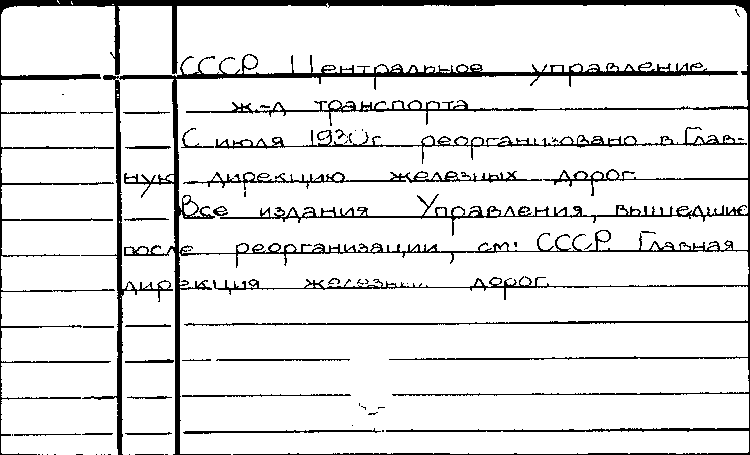 СССР. Центральное управление
ж.-д транспорта
С июля 1930г. реорганизовано в Глав-
ную дирекцию железных дорог.
Все издания Управления, вышедшие
после реорганизации, см: СССР. Главная
дирекция железных дорог.